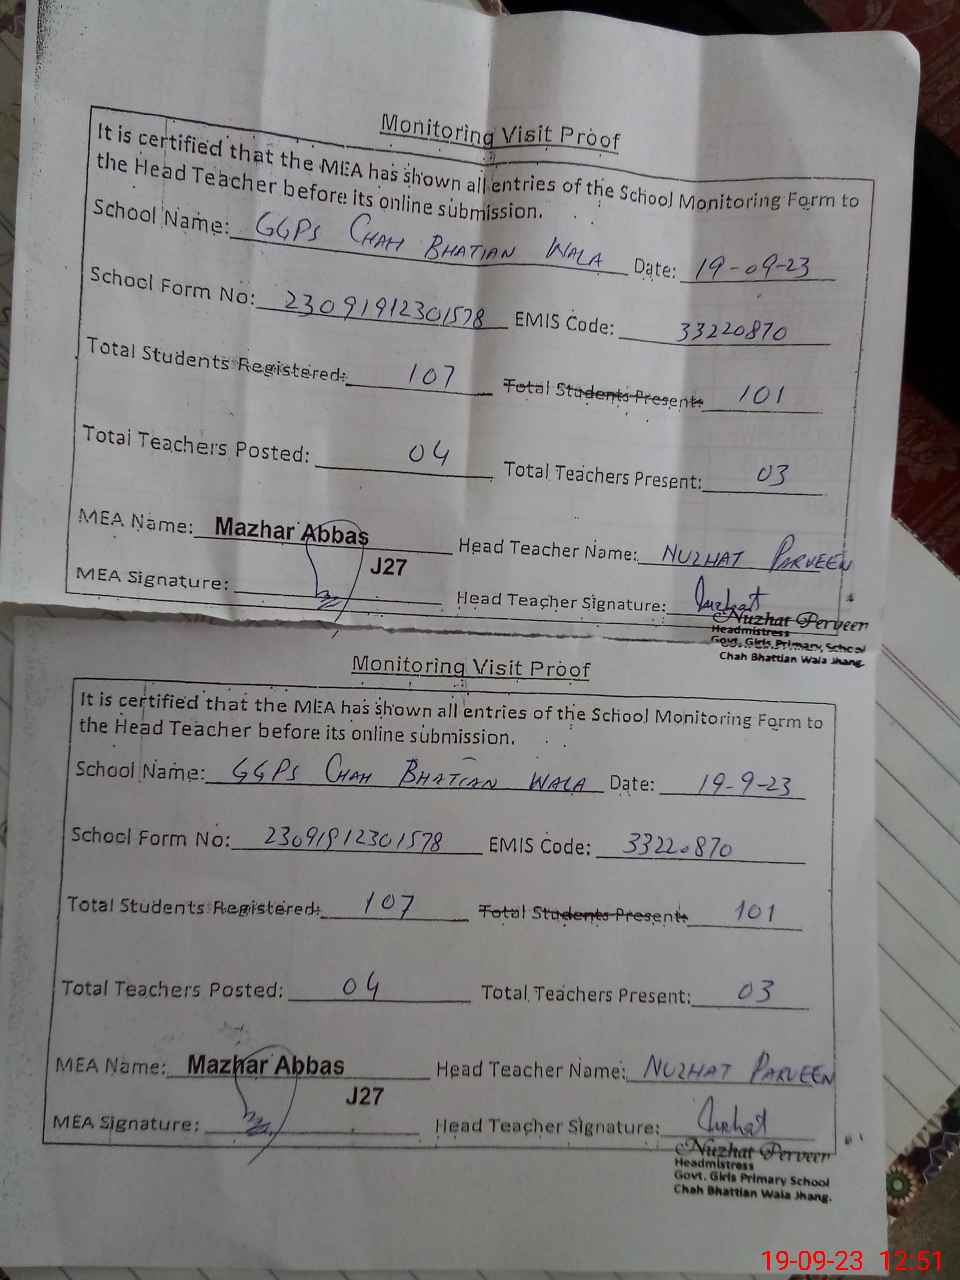 Monitoring Visit Proof
It is certified that the MEA has shown all entries of the School Monitoring Form to
the Head Teacher before its online submission.
School Name: GGPS CHAH BHATIAN WALA Date: 19-09-23
School Form No: 23091912301578 EMIS Code: 33220870
Total Students Registered: 107 Total Students Present: 101
Total Teachers Posted: 04 Total Teachers Present: 03
MEA Name: Mazhar Abbas Head Teacher Name: NUZHAT PARVEEN
J27
MEA Signature: Head Teacher Signature: Nuzhat
Nuzhat Perveen
Headmistress
Govt. Girls Primary School
Chah Bhattian Wala Jhang.
Monitoring Visit Proof
It is certified that the MEA has shown all entries of the School Monitoring Form to
the Head Teacher before its online submission.
School Name: GGPS CHAH BHATIAN WALA Date: 19-9-23
School Form No: 23091912301578 EMIS Code: 33220870
Total Students Registered: 107 Total Students Present: 101
Total Teachers Posted: 04 Total Teachers Present: 03
MEA Name: Mazhar Abbas Head Teacher Name: NUZHAT PARVEEN
J27
MEA Signature: Head Teacher Signature: Nuzhat
Nuzhat Perveen
Headmistress
Govt. Girls Primary School
Chah Bhattian Wala Jhang.
19-09-23 12:51